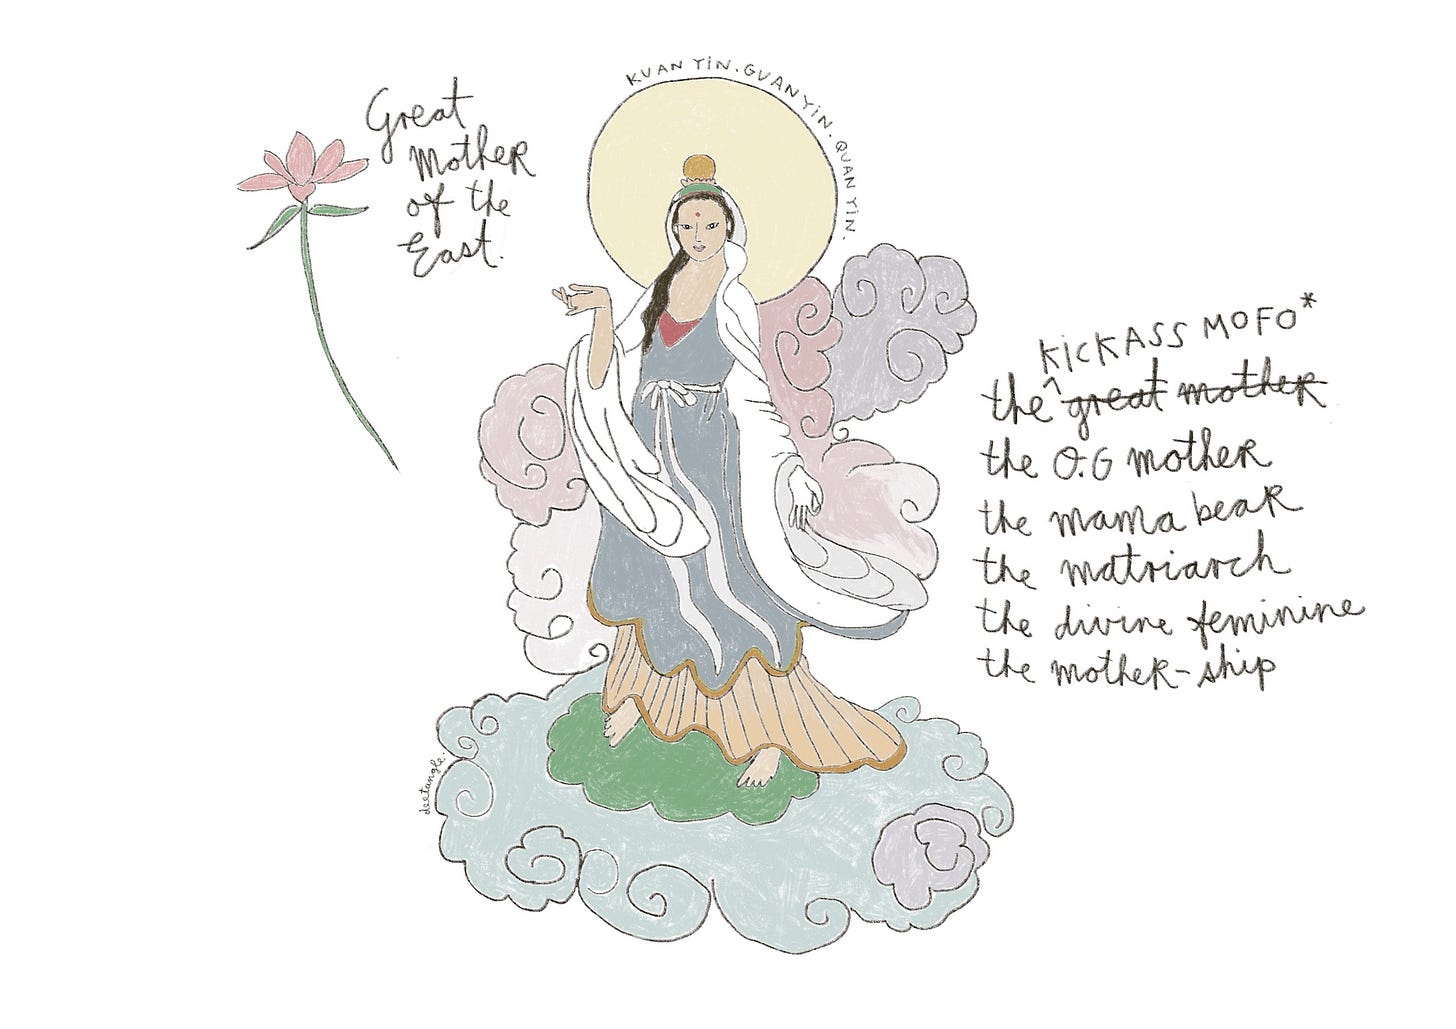 Great
Mother
of the
East.
KUAN YIN. GUAN YIN. QUAN YIN.
KICKASS MOFO*
the ^ great mother
the O.G mother
the mama bear
the matriarch
the divine feminine
the mother-ship
deetangle.